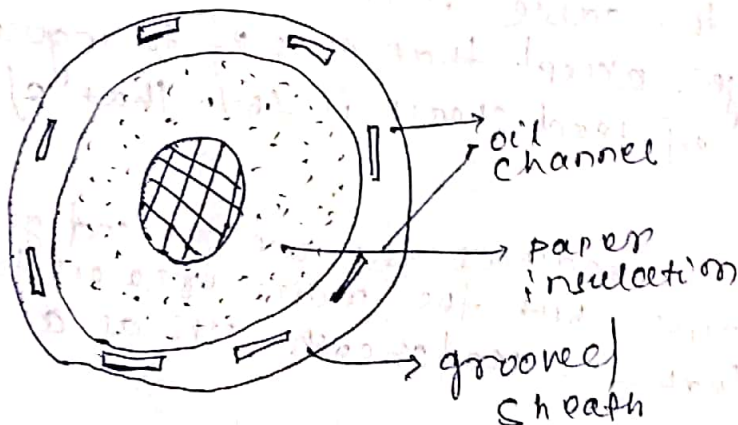 oil
channel
paper
insulation
grooved
sheath